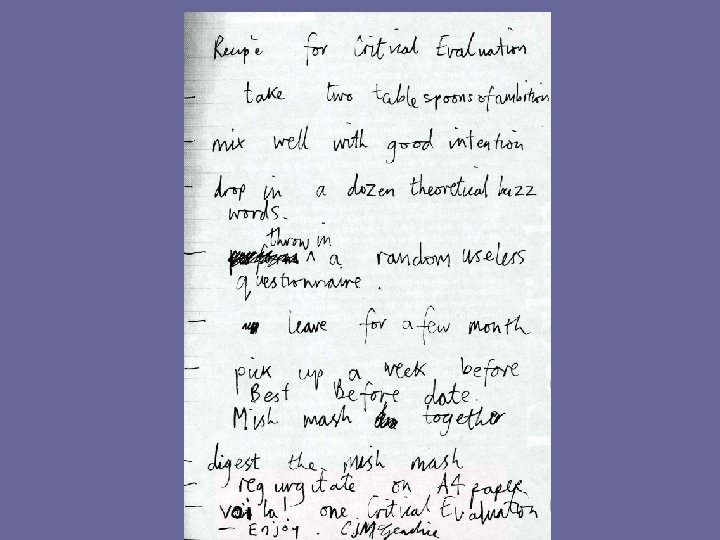 Recipe for Critical Evaluation
- take two tablespoons of ambition
- mix well with good intention
- drop in a dozen theoretical buzz
words.
throw in
- ^ a random useless
questionnaire.
- leave for a few month
- pick up a week before
Best Before date.
Mish mash together
- digest the mish mash
- regurgitate on A4 paper
voila! one Critical Evaluation
- Enjoy.